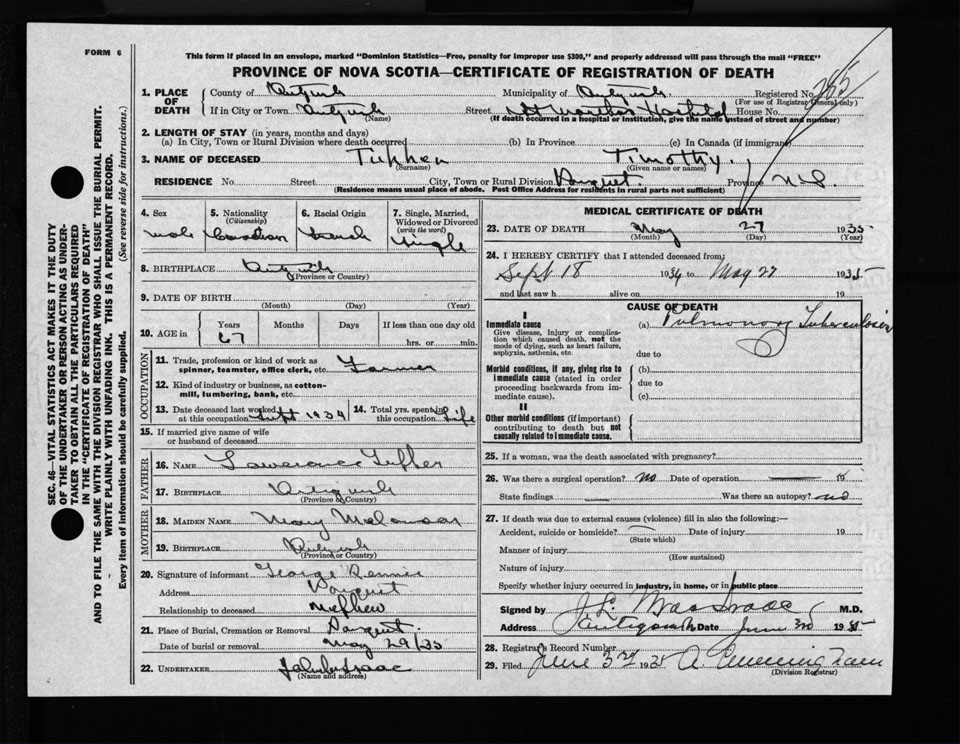 FORM 6
This form if placed in an envelope, marked "Dominion Statistics—Free, penalty for improper use $300," and properly addressed will pass through the mail "FREE"
PROVINCE OF NOVA SCOTIA—CERTIFICATE OF REGISTRATION OF DEATH
SEC. 46—VITAL STATISTICS ACT MAKES IT THE DUTY
OF THE UNDERTAKER OR PERSON ACTING AS UNDER-
TAKER TO OBTAIN ALL THE PARTICULARS REQUIRED
IN THE "CERTIFICATE OF REGISTRATION OF DEATH"
AND TO FILE THE SAME WITH THE DIVISION REGISTRAR WHO SHALL ISSUE THE BURIAL PERMIT.
WRITE PLAINLY WITH UNFADING INK. THIS IS A PERMANENT RECORD.
Every item of information should be carefully supplied. (See reverse side for instructions.)
1. PLACE OF DEATH
County of Antigonish Municipality of Antigonish Registered No. 285
(For use of Registrar General only)
If in City or Town Antigonish Street St Marthas Hospital House No.
(Name) (If death occurred in a hospital or institution, give the name instead of street and number)
2. LENGTH OF STAY (in years, months and days)
(a) In City, Town or Rural Division where death occurred (b) In Province (c) In Canada (if immigrant)
3. NAME OF DECEASED Timothy.
(Surname) (Given name or names)
RESIDENCE No. Street City, Town or Rural Division Pomquet. Province N.S.
(Residence means usual place of abode. Post Office Address for residents in rural parts not sufficient)
4. Sex male
5. Nationality (Citizenship) Canadian
6. Racial Origin French
7. Single, Married, Widowed or Divorced (write the word) Single
8. BIRTHPLACE Antigonish
(Province or Country)
9. DATE OF BIRTH
(Month) (Day) (Year)
10. AGE in Years 67 Months Days If less than one day old
hrs. or min.
OCCUPATION
11. Trade, profession or kind of work as spinner, teamster, office clerk, etc. Farmer
12. Kind of industry or business, as cotton-mill, lumbering, bank, etc.
13. Date deceased last worked at this occupation Sept 1934
14. Total yrs. spent in this occupation Life
15. If married give name of wife or husband of deceased
FATHER
16. NAME Lawrence
17. BIRTHPLACE Antigonish
(Province or Country)
MOTHER
18. MAIDEN NAME Mary Melanson
19. BIRTHPLACE Antigonish
(Province or Country)
20. Signature of informant George Rennie
Address Pomquet
Relationship to deceased nephew
21. Place of Burial, Cremation or Removal Pomquet.
Date of burial or removal May 29/35
22. UNDERTAKER
(Name and address)
MEDICAL CERTIFICATE OF DEATH
23. DATE OF DEATH May 27 1935
(Month) (Day) (Year)
24. I HEREBY CERTIFY that I attended deceased from:
Sept 18 1934 to May 27 1935
and last saw h alive on 19
CAUSE OF DEATH
I
Immediate cause
Give disease, injury or complica-
tion which caused death, not the
mode of dying, such as heart failure,
asphyxia, asthenia, etc.
(a) Pulmonary Tuberculosis
due to
Morbid conditions, if any, giving rise to
immediate cause (stated in order
proceeding backwards from im-
mediate cause).
(b)
due to
(c)
II
Other morbid conditions (if important)
contributing to death but not
causally related to immediate cause.
25. If a woman, was the death associated with pregnancy?
26. Was there a surgical operation? no Date of operation 19
State findings Was there an autopsy? no
27. If death was due to external causes (violence) fill in also the following:—
Accident, suicide or homicide? Date of injury 19
(State which)
Manner of injury
(How sustained)
Nature of injury
Specify whether injury occurred in industry, in home, or in public place
Signed by J. L. MacIsaac M.D.
Address Antigonish Date June 3rd 1935
28. Registrar's Record Number
29. Filed June 3rd 1935 A.
(Division Registrar)